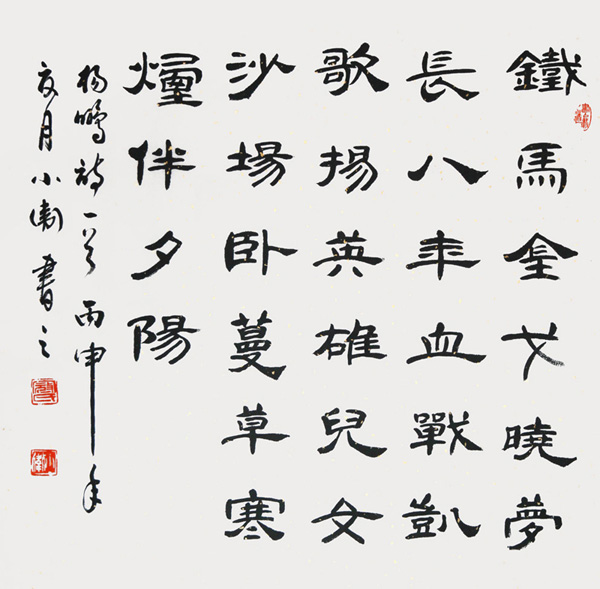 鐵馬金戈曉夢
長八年血戰凱
歌揚英雄兒女
沙場卧蔓草寒
煙伴夕陽
楊鵬詩一首丙申年
夏月小衛書之